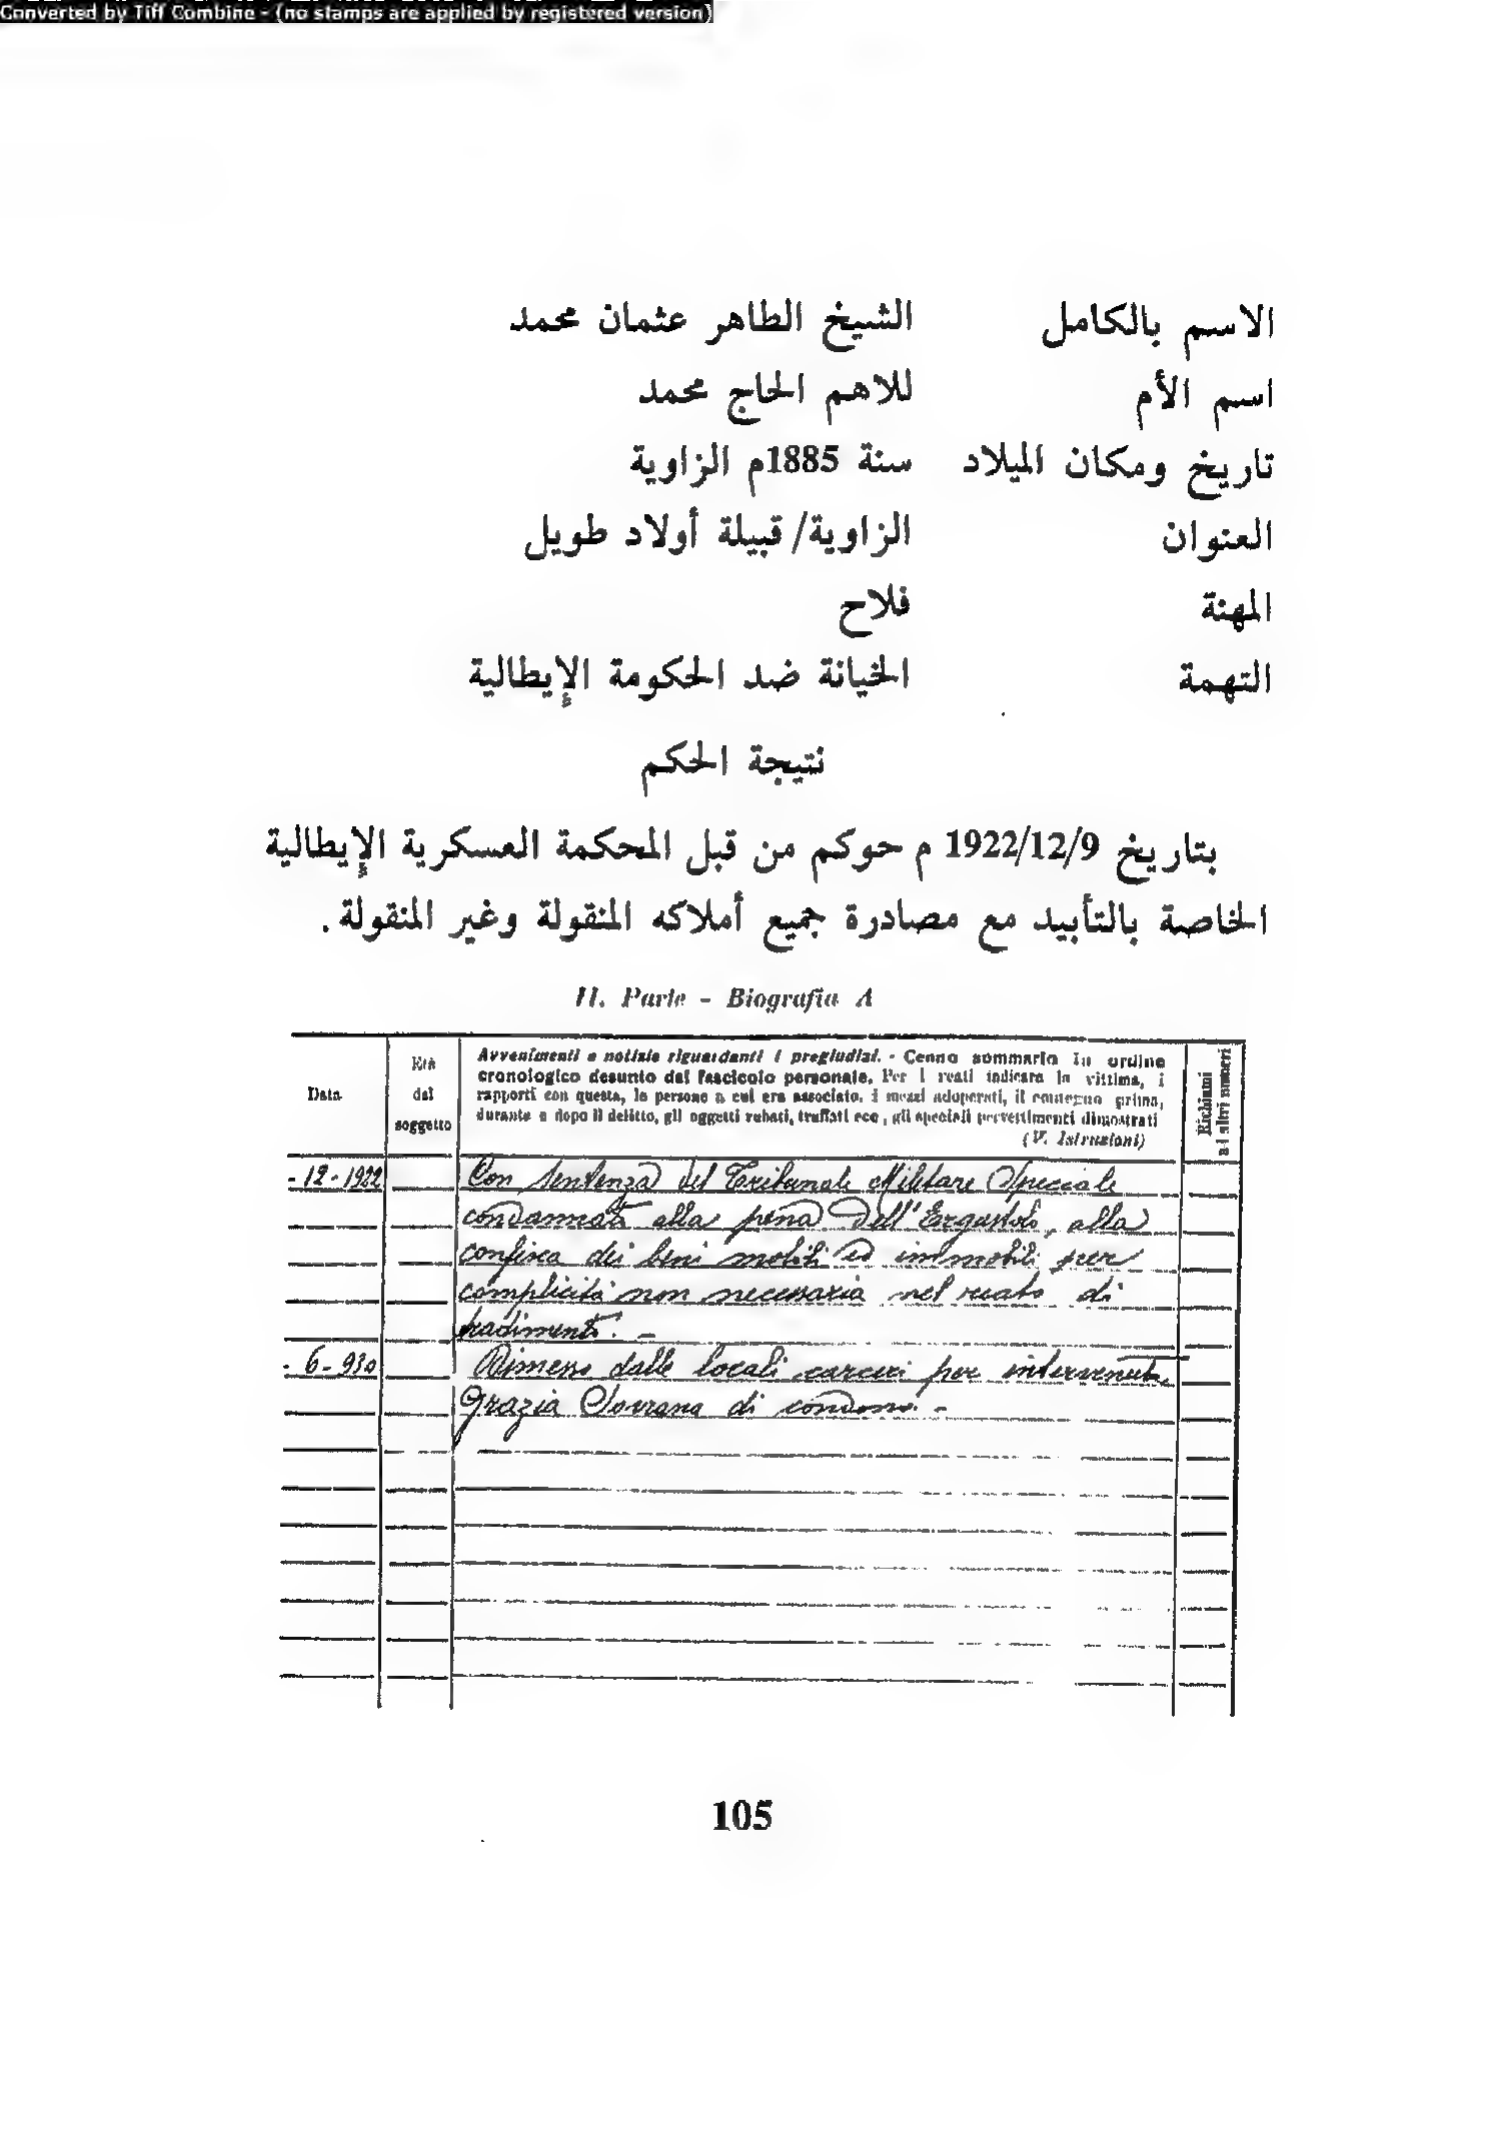 Converted by Tiff Combine - (no stamps are applied by registered version)
الاسم بالكامل الشيخ الطاهر عثمان محمد
اسم الأم للاهم الحاج محمد
تاريخ ومكان الميلاد سنة 1885م الزاوية
العنوان الزاوية/ قبيلة أولاد طويل
المهنة فلاح
التهمة الخيانة ضد الحكومة الإيطالية
نتيجة الحكم
بتاريخ 1922/12/9 م حوكم من قبل المحكمة العسكرية الإيطالية
الخاصة بالتأبيد مع مصادرة جميع أملاكه المنقولة وغير المنقولة.
II. Parte - Biografia A
Data
Età
del
soggetto
Avvenimenti e notizie riguardanti i pregiudizi. - Cenno sommario in ordine
cronologico desunto dal fascicolo personale. Per i reati indicare la vittima, i
rapporti con questa, le persone a cui era associato, i mezzi adoperati, il contegno prima,
durante e dopo il delitto, gli oggetti rubati, truffati ecc, gli speciali pervertimenti dimostrati
(V. Istruzioni)
Richiami
ad altri numeri
- 12 - 1922 Con sentenza del Tribunale Militare Speciale
condannato alla pena dell'Ergastolo, alla
confisca dei beni mobili ed immobili per
complicità non necessaria nel reato di
tradimento. -
- 6 - 930 Dimesso dalle locali carceri per intervenuta
Grazia Sovrana di condono. -
105